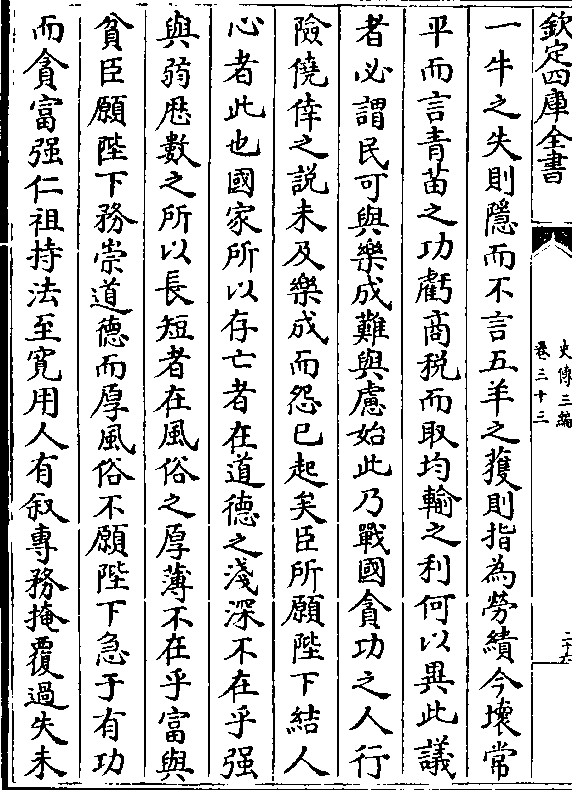 欽定四庫全書
史傳三編
卷三十三
二十六
一牛之失則隱而不言五羊之獲則指為勞績今壞常
平而言青苗之功虧商稅而取均輸之利何以異此議
者必謂民可與樂成難與慮始此乃戰國貪功之人行
險僥倖之説未及樂成而怨已起矣臣所願陛下結人
心者此也國家所以存亡者在道德之淺深不在乎强
與弱厯數之所以長短者在風俗之厚薄不在乎富與
貧臣願陛下務崇道德而厚風俗不願陛下急于有功
而貪富强仁祖持法至寛用人有叙專務掩覆過失未